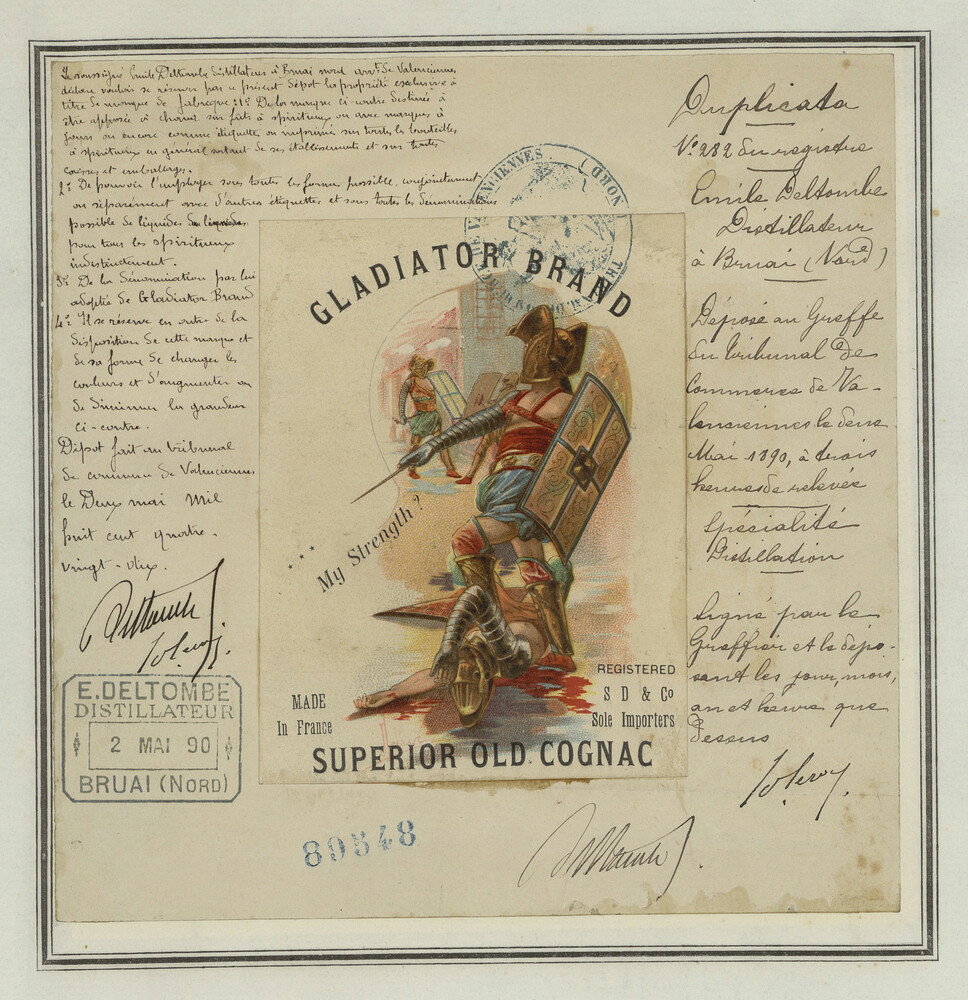 Je soussigné Emile Deltombe distillateur à Bruai nord arrt de Valenciennes
déclare vouloir se réserver par le présent dépôt la propriété exclusive à
titre de marque de fabrique: 1° De la marque ci-contre destinée à
être apposée à chaud sur fûts à spiritueux ou avec marques à
jours ou encore comme étiquette ou imprimé sur toutes les bouteilles
à spiritueux en général sortant de ses établissements et sur toutes
caisses et emballages.
2° De pouvoir l'employer sous toutes les formes possible, conjointement
ou séparément avec d'autres étiquettes et sous toutes les dénominations
possible de liquides
pour tous les spiritueux
indistinctement.
3° De la dénomination par lui
adoptée de Gladiator Brand
4° Il se réserve en outre de la
disposition de cette marque et
de sa forme de changer les
couleurs et d'augmenter ou
de diminuer la grandeur
ci-contre.
Dépot fait au tribunal
de commerce de Valenciennes
le Deux mai mil
huit cent quatre-
vingt-dix.
Deltombe
E. DELTOMBE
DISTILLATEUR
2 MAI 90
BRUAI (NORD)
GLADIATOR BRAND
My Strength?
MADE
In France
REGISTERED
S D & Co
Sole Importers
SUPERIOR OLD COGNAC
89548
Deltombe
Duplicata
N° 282 du registre
Emile Deltombe
Distillateur
à Bruai (Nord)
Déposé au Greffe
du tribunal de
Commerce de Va-
lenciennes le deux
Mai 1890, à trois
heures de relevée
Spécialité
Distillation
Signé par le
Greffier et le dépo-
sant les jour, mois,
an et heure que
dessus